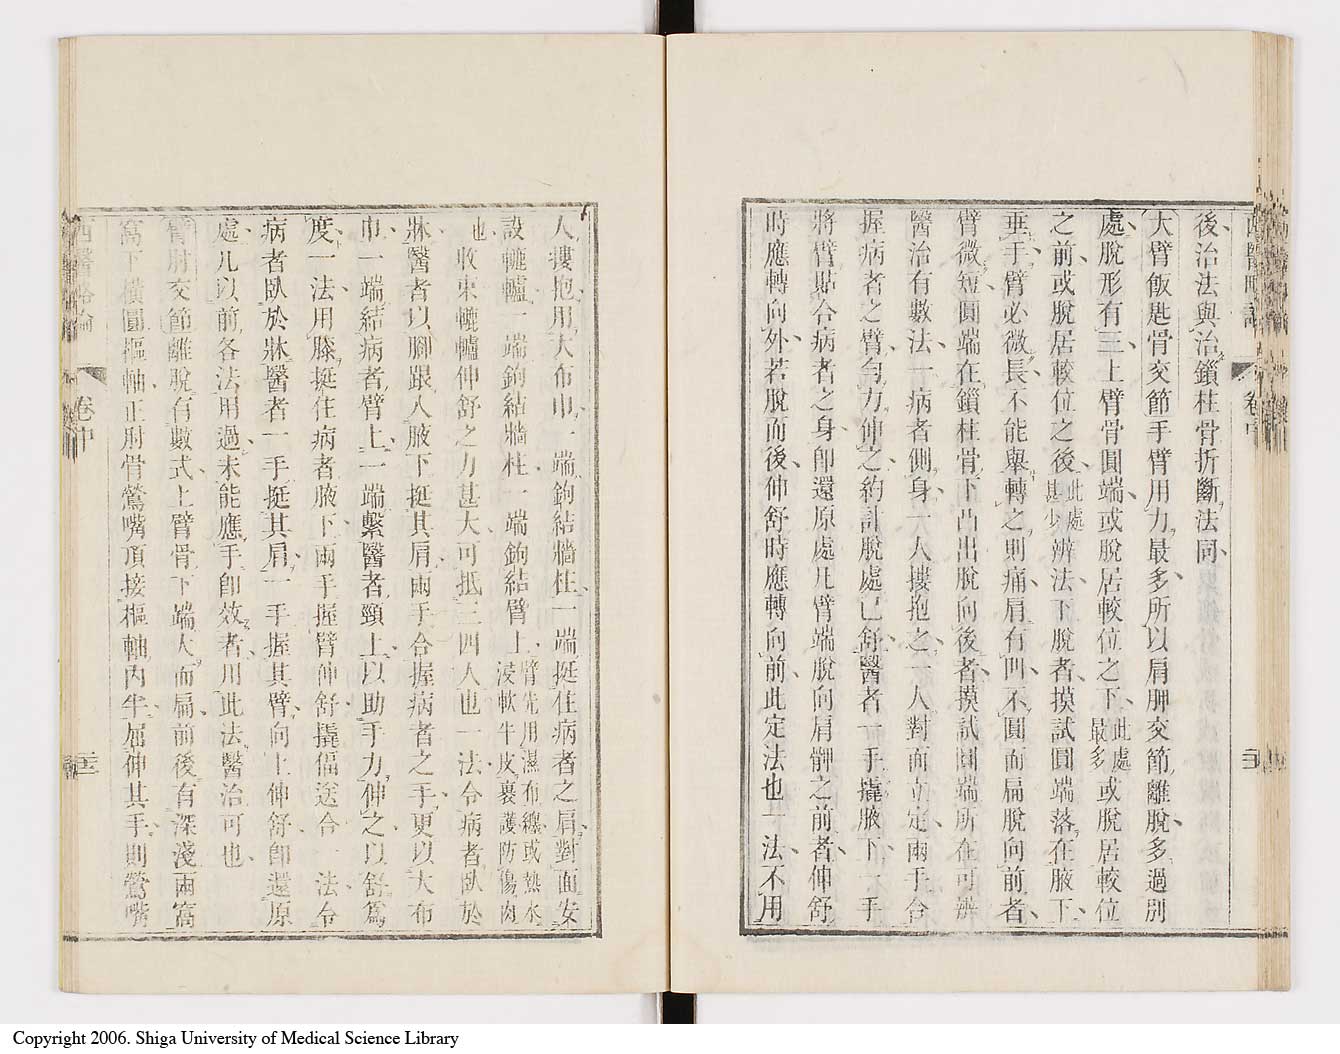 後治法與治鎖柱骨折斷法同
大臂飯匙骨交節手臂用力最多所以肩胛交節離脫多過別
處脫形有三上臂骨圓端或脫居較位之下此處最多或脫居較位
之前或脫居較位之後此處甚少辨法下脫者摸試圓端落在腋下
垂手臂必微長不能舉轉之則痛肩有凹不圓而扁脫向前者
臂微短圓端在鎖柱骨下凸出脫向後者摸試圓端所在可辨
醫治有數法一病者側身一人摟抱之一人對面立定兩手合
握病者之臂勻力伸之約計脫處已舒醫者一手撬腋下一手
將臂貼合病者之身卽還原處凡臂端脫向肩髀之前者伸舒
時應轉向外若脫而後伸舒時應轉向前此定法也一法不用
人摟抱用大布巾一端鉤結牆柱一端挺住病者之肩對面安
設轆轤一端鉤結牆柱一端鉤結臂上臂先用濕布纏或熱水浸軟牛皮裹護防傷肉
也收束轆轤伸舒之力甚大可抵三四人也一法令病者臥於
牀醫者以腳跟入腋下挺其肩兩手合握病者之手更以大布
巾一端結病者臂上一端繫醫者頸上以助手力伸之以舒爲
度一法用膝挺住病者腋下兩手握臂伸舒撬偪送合一法令
病者臥於牀醫者一手挺其肩一手握其臂向上伸舒卽還原
處凡以前各法用過未能應手卽效者用此法醫治可也
臂肘交節離脫有數式上臂骨下端大而扁前後有深淺兩窩
窩下橫圓樞軸正肘骨鶯嘴頂接樞軸內半屈伸其手則鶯嘴
西醫略論
卷中